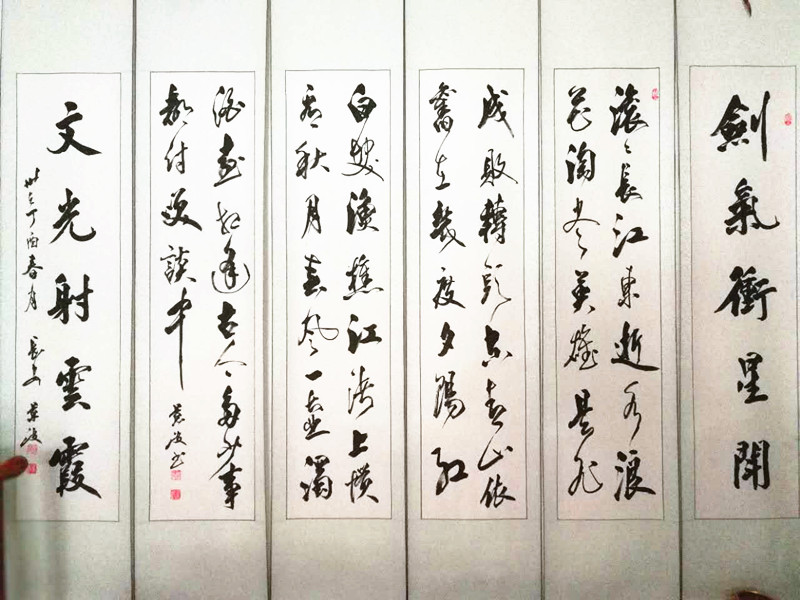 劍氣衝星閗
滚〻長江東逝水浪
花淘尽英雄是非
成敗轉頭空青山依
舊在幾度夕陽紅
白髮漁樵江渚上慣
看秋月春風一壺濁
酒喜相逢古今多少事
都付笑談中
书
文光射雲霞
歲在丁酉春月 長安